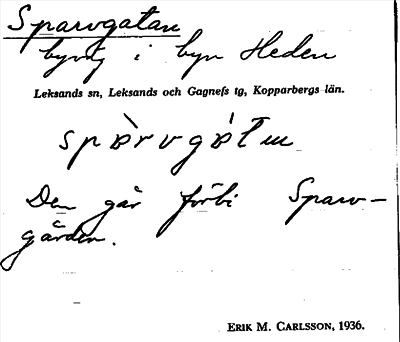 Sparvgatan
byväg i byn Heden
Leksands sn, Leksands och Gagnefs tg, Kopparbergs län.
Den går förbi Sparv-
gården.
ERIK M. CARLSSON, 1936.